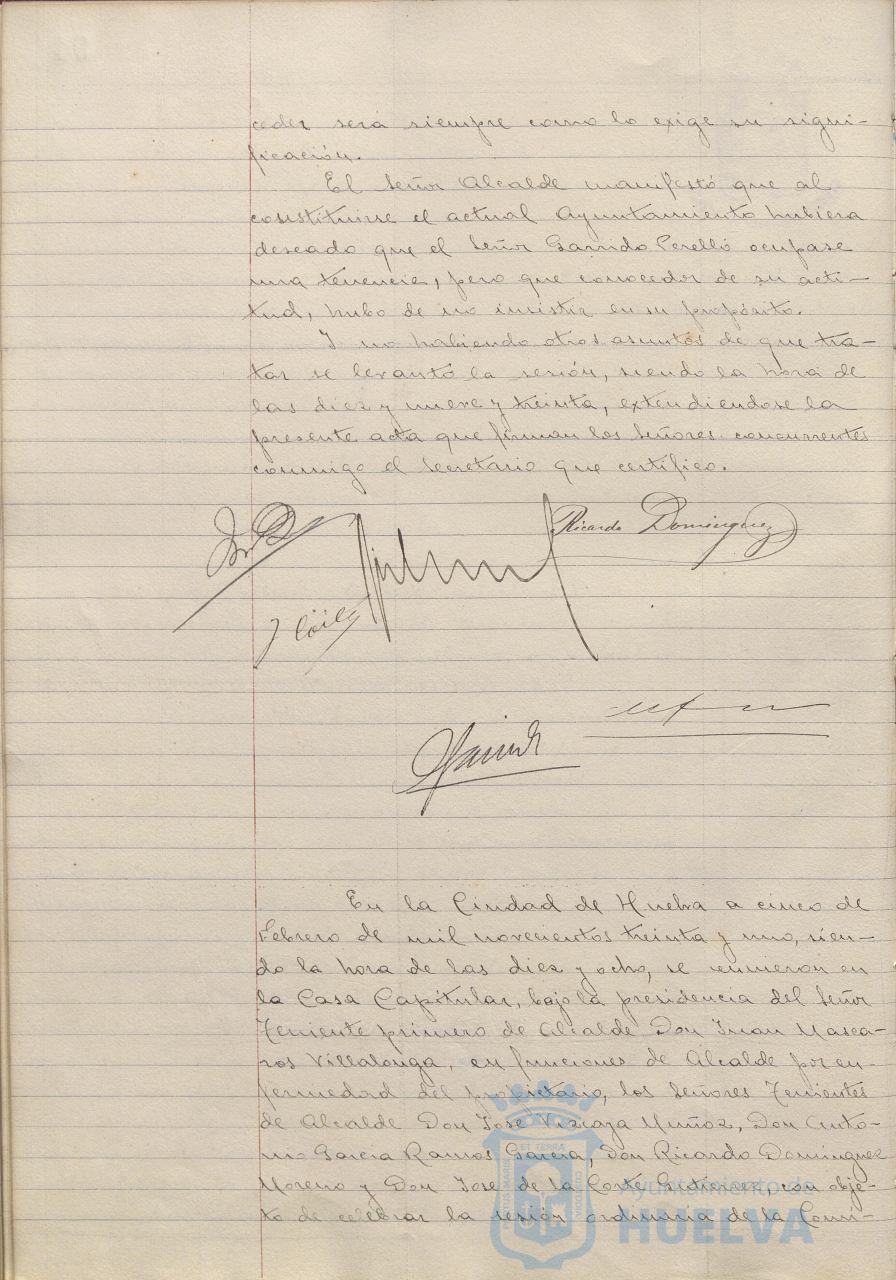 ceder será siempre como lo exige su signi-
ficación.
El Señor Alcalde manifestó que al
cosistituirse el actual Ayuntamiento hubiera
deseado que el Señor Garrido Perelló ocupase
una tenencia, pero que conocedor de su acti-
tud, hubo de no insistir en su propósito.
Y no habiendo otros asuntos de que tra-
tar se levantó la sesión, siendo la hora de
las diez y nueve y treinta, extendiendose la
presente acta que firman los Señores concurrentes
conmigo el Secretario que certifico.
Ricardo Dominguez
En la Ciudad de Huelva a cinco de
Febrero de mil novecientos treinta y uno, sien-
do la hora de las diez y ocho, se reunieron en
la Casa Capitular, bajo la presidencia del Señor
Teniente primero de Alcalde Don Juan Masca-
ros Villalonga, en funciones de Alcalde por en-
fermedad del propietario, los Señores Tenientes
de Alcalde Don José Vizcaya Muñoz, Don Anto-
nio Garcia Ramos Garcia, Don Ricardo Dominguez
Moreno y Don José de la Corte Gutierrez, con obje-
to de celebrar la sesión ordinaria de la Comi-
Ayuntamiento de
HUELVA